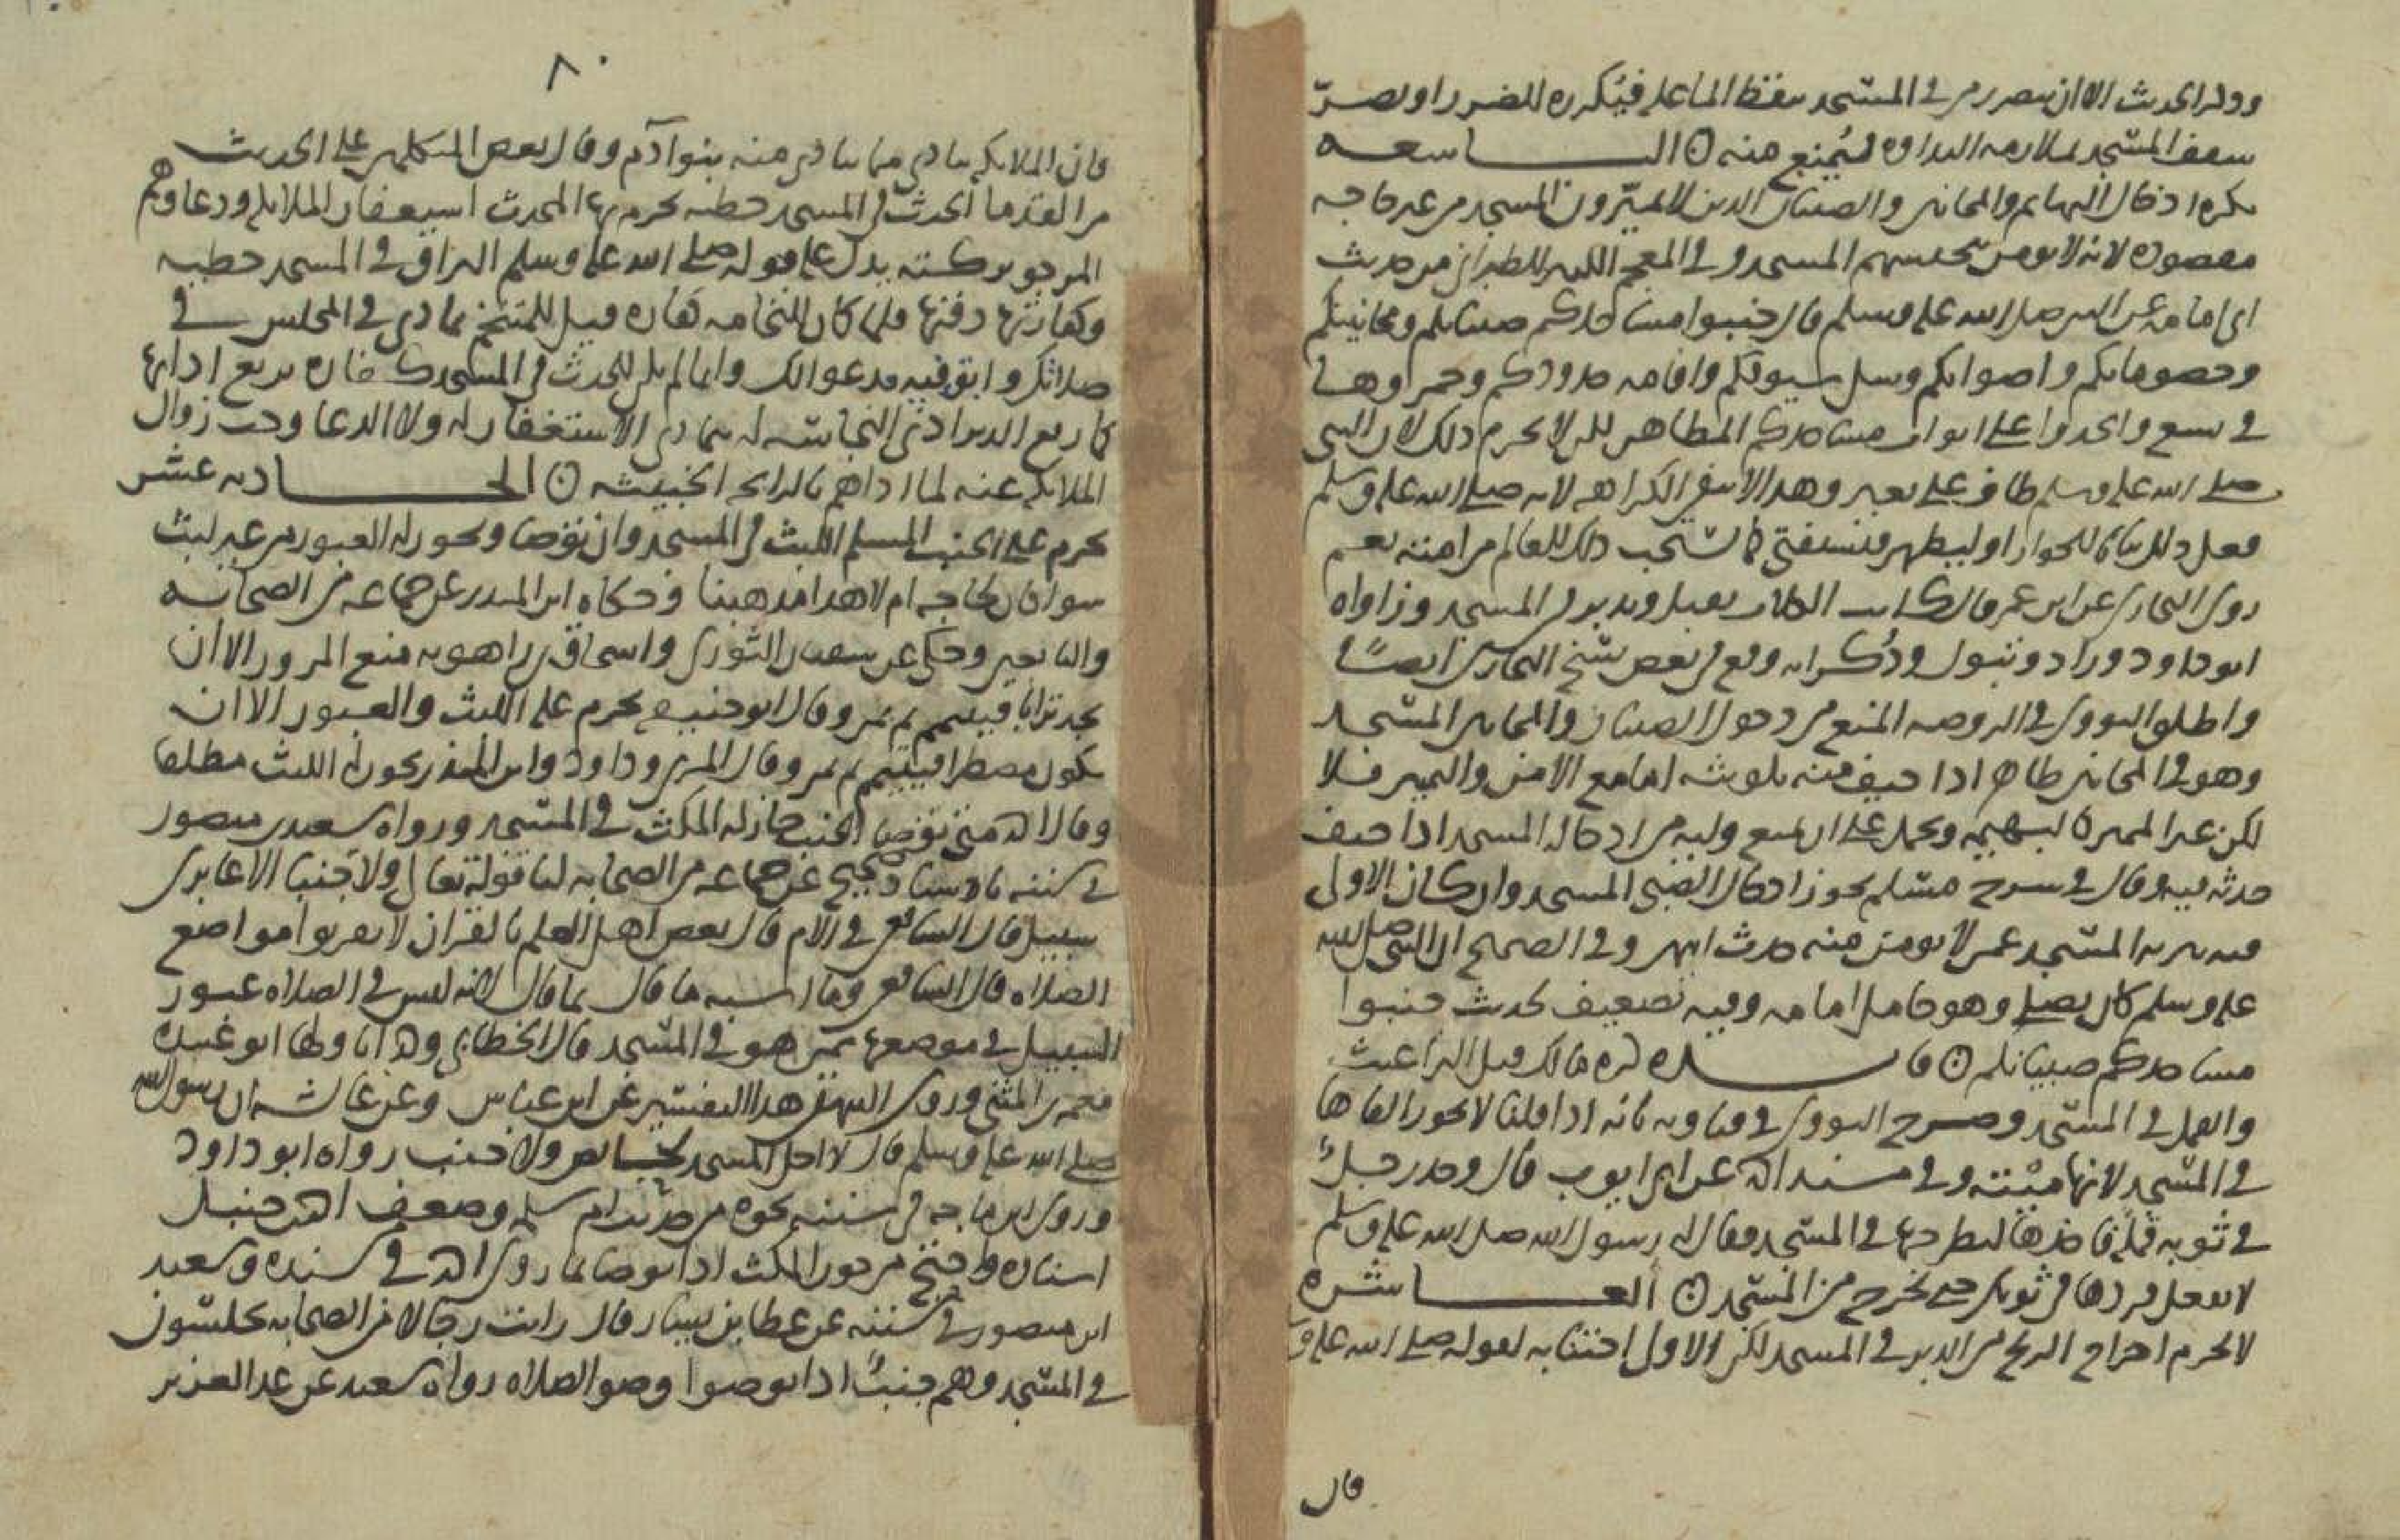 وولد الحدث الا ان يتضرر من في المسجد بسقط الماء عليه فيكره للضرر او يضر
سقف المسجد بملازمة النداوة فيمنع منه ن التاسعه
يكره ادخال البهائم والمجانين والصبيان الذين لا يميزون المسجد من غير حاجه
مقصوده لانه لا يومن تنجيسهم المسجد وفي المعجم الكبير للطبراني من حديث
ابي امامه عن النبي صلى الله عليه وسلم قال جنبوا مساجدكم صبيانكم ومجانينكم
وخصوماتكم واصواتكم وسل سيوفكم واقامه حدودكم وجمروها
في سبع واتخذوا على ابواب مساجدكم المطاهر لكن لا يحرم ذلك لان النبي
صلى الله عليه وسلم طاف على بعير وهذا لا ينفي الكراهه لانه صلى الله عليه وسلم
فعل ذلك بيانا للجواز او ليظهر فيستفتى كما يستحب ذلك للعالم من امته نعم
روى البخاري عن ابن عمر قال كانت الكلاب تقبل وتدبر في المسجد وزاد اواه
ابو داود وزاد وتبول وذكر انه وقع في بعض نسخ البخاري ايضا
واطلق النووي في الروضه المنع من دخول الصبيان والمجانين المسجد
وهو في المجانين ظاهر اذا خيف منه تلويثه اما مع الامن والتمييز فلا
لكن غير المميز كالبهيمه وتحمل على ان يمنع وليه من ادخاله المسجد اذا خيف
حدثه فيه وقال في شرح مسلم يجوز ادخال الصبي المسجد وان كان الاولى
فيه تنزيه المسجد عمن لا يومن منه حدث انتهى وفي الصحيح ان النبي صلى الله
عليه وسلم كان يصلي وهو حامل امامه وفيه تضعيف لحديث جنبوا
مساجدكم صبيانكم ن فايده كره مالك قتل البراغيث
والقمل في المسجد وصرح النووي في فتاويه بانه اذا قتلها لا يجوز القاها
في المسجد لانها ميتته وفي مسند احمد عن ابي ايوب قال وجد رجل
في ثوبه قمله فاخذها ليطرحها في المسجد فقال له رسول الله صلى الله عليه وسلم
لا تفعل وردها في ثوبك حتى تخرج من المسجد ن العاشره
لا يحرم اخراج الريح من الدبر في المسجد لكن الاولى اجتنابه لقوله صلى الله عليه و
قال
٨٠
فان الملايكه تتاذى مما يتاذى منه بنوا آدم وقال بعض المتكلمين على الحديث
من الفقهاء الحدث في المسجد خطيه يحرم بها المحدث استغفار الملايكه ودعاوهم
المرجو بركته يدل عليه قوله صلى الله عليه وسلم البزاق في المسجد خطيه
وكفارتها دفنها فلما كان للنخامه كفاره قيل للمتنخم تمادى في المجلس في
صلاتك وابق فيه مدعوا لك وانما لم يكن للحدث في المسجد كفاره ترفع اذاها
كما رفع الدفن اذى النخامه له يتمادى الاستغفار له ولا الدعا وجب زوال
الملايكه عنه لما اذاهم بالرايحه الخبيثه ن الحاديه عشر
يحرم على الجنب المسلم اللبث في المسجد وان توضا ويجوز له العبور من غير لبث
سوا كان لحاجه ام لا هذا مذهبنا وحكاه ابن المنذر عن جماعه من الصحابه
والتابعين وحكي عن سفيان الثوري واسحاق بن راهويه منع المرور الا ان
يجد ترابا فيتيمم ثم يمر وقال ابو حنيفه يحرم عليه اللبث والعبور الا ان
يكون مضطرا فيتيمم ثم يمر وقال المزني وداود وابن المنذر يجوز له اللبث مطلقا
وقال احمد متى توضا الجنب جاز له المكث في المسجد ورواه سعيد بن منصور
في سننه باسناد صحيح عن جماعه من الصحابه لنا قوله تعالى ولا جنبا الا عابري
سبيل قال الشافعي في الام قال بعض اهل العلم بالقران لا تقربوا مواضع
الصلاه قال الشافعي وما اشبه ما قال بما قال لانه ليس في الصلاه عبور
السبيل في موضعها ممن هو في المسجد قال الخطابي وهكذا تاولها ابو عبيده
معمر بن المثنى وروى البيهقي هذا التفسير عن ابن عباس وعن عائشه ان رسول الله
صلى الله عليه وسلم قال لا احل المسجد لحائض ولا جنب رواه ابو داود
وروى ابن ماجه في سننه نحوه من حديث ام سلمه وضعف احمد بن حنبل
اسناده واحتج من جوز المكث اذا توضا بما روى احمد في سننه وسعيد
ابن منصور في سننه عن عطا بن يسار قال رايت رجالا من الصحابه يجلسون
في المسجد وهم جنب اذا توضوا وضو الصلاه رواه سعيد عن عبد العزيز